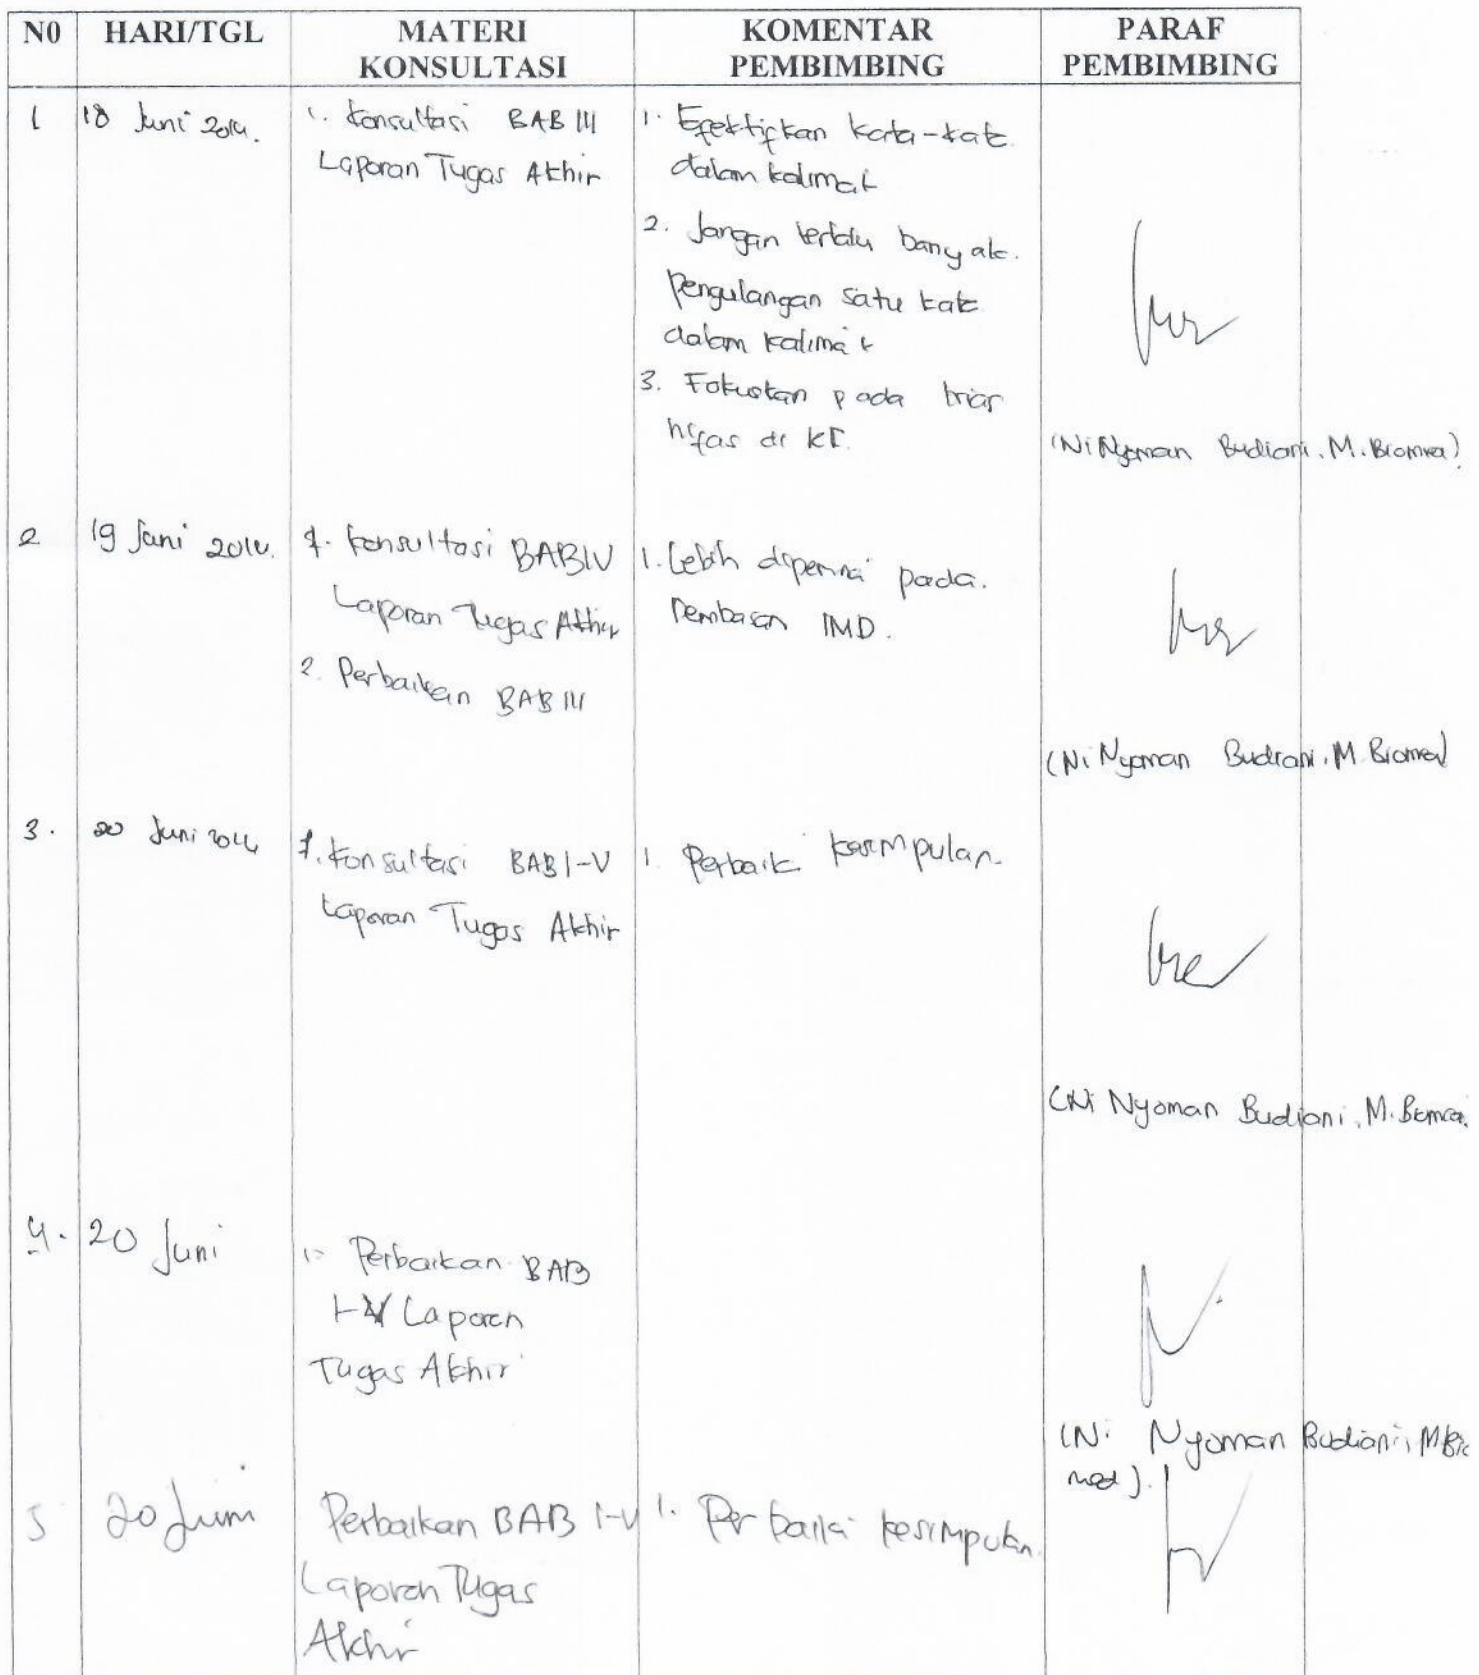 N0 HARI/TGL MATERI KONSULTASI KOMENTAR PEMBIMBING PARAF PEMBIMBING
1 18 Juni 2014.
1. Konsultasi BAB III
Laporan Tugas Akhir
1. Efektifkan kata-kata
dalam kalimat
2. Jangan terlalu banyak
pengulangan satu kata
dalam kalimat
3. Fokuskan pada
nifas di
(Ni Nyoman Budiani, M. Biomed)
2 19 Juni 2014.
1. Konsultasi BAB IV
Laporan Tugas Akhir
2. Perbaikan BAB III
1. Lebih diperinci pada
IMD.
(Ni Nyoman Budiani, M. Biomed)
3. 20 Juni 2014
1. Konsultasi BAB I-V
Laporan Tugas Akhir
1. Perbaik kesimpulan
(Ni Nyoman Budiani, M. Biomed
4. 20 Juni
1. Perbaikan BAB
I-V Laporan
Tugas Akhir
(Ni Nyoman Budiani, M Bio
med).
5 20 Juni
Perbaikan BAB I-V
Laporan Tugas
Akhir
1. Perbaiki kesimpulan.